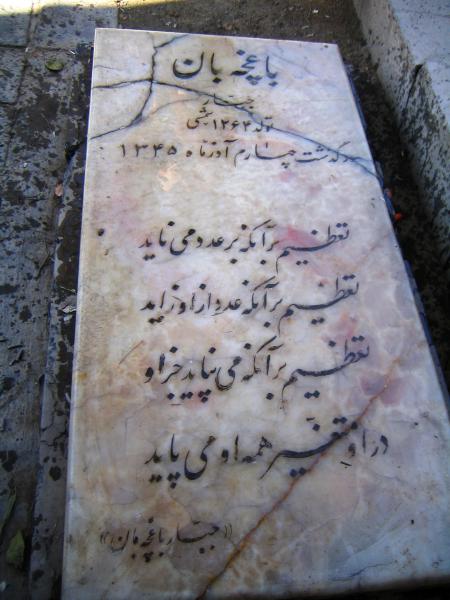 باغچه بان
جبار
تولد ۱۲۶۴ شمسی
درگذشت چهارم آذرماه ۱۳۴۵
تعظیم بر آنکه بر عدد می ناید
تعظیم بر آنکه عدد از او زاید
تعظیم بر آنکه می نپاید جز او
در او متغیر همه او می پاید
«جبار باغچه بان»